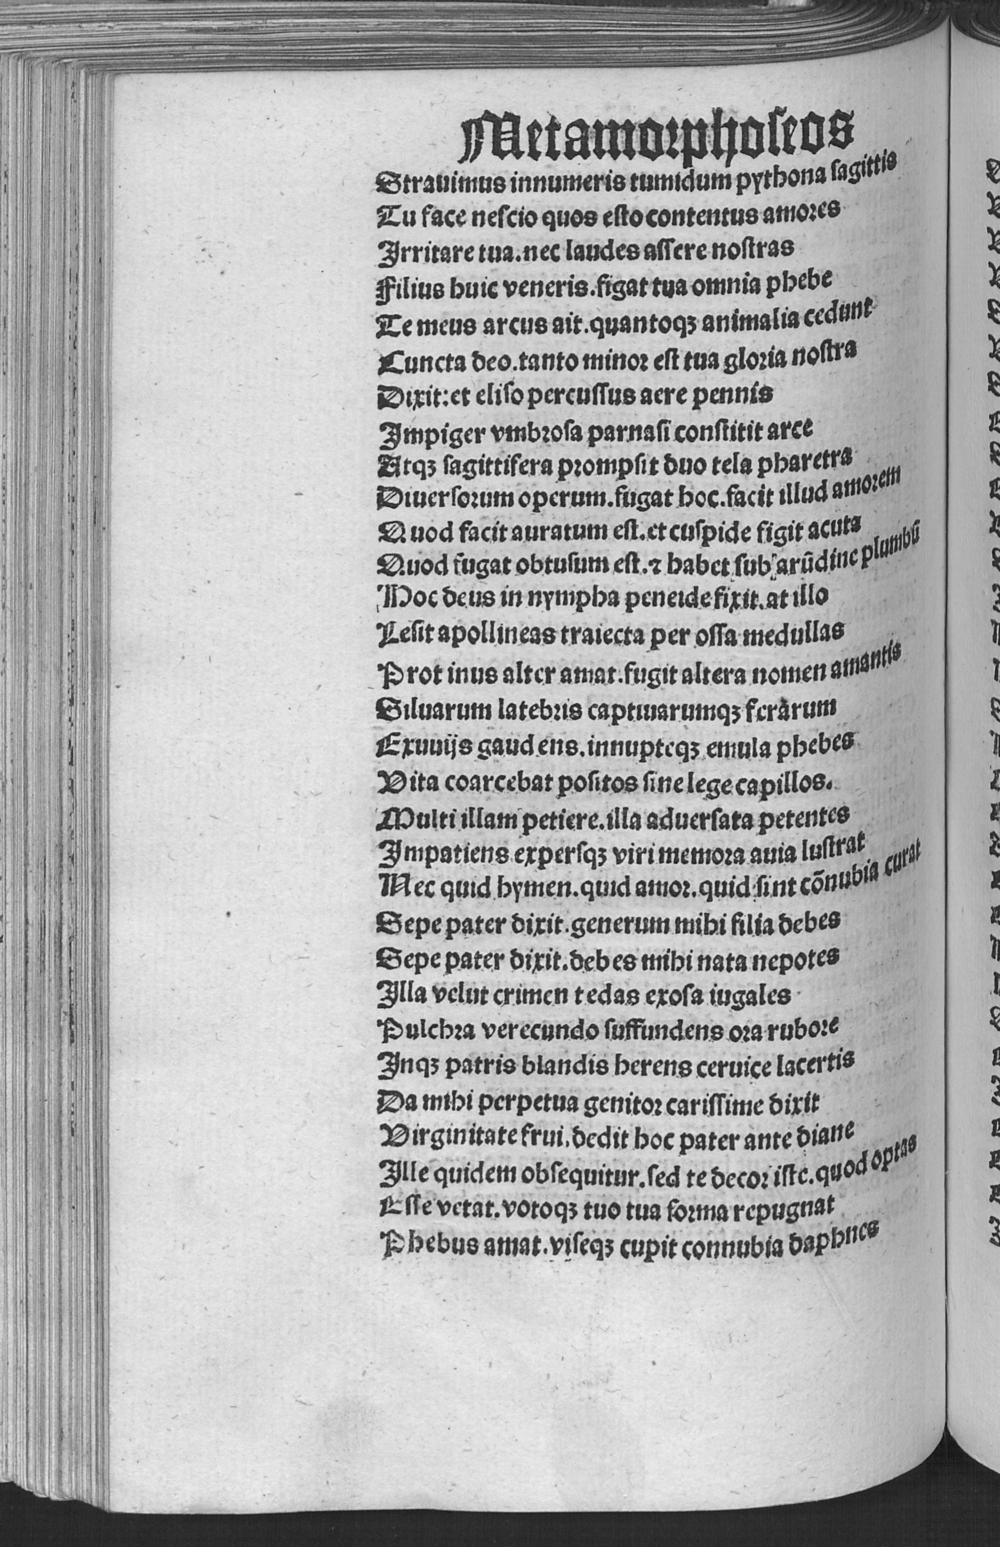 Metamorphoseos
Strauimus innumeris tumidum pythona sagittis
Tu face nescio quos esto contentus amores
Irritare tua. nec laudes assere nostras
Filius huic veneris. figat tua omnia phebe
Te meus arcus ait. quantoqꝫ animalia cedunt
Cuncta deo. tanto minor est tua gloria nostra
Dixit: et eliso percussus aere pennis
Impiger vmbrosa parnasi constitit arce
Atqꝫ sagittifera prompsit duo tela pharetra
Diuersorum operum. fugat hoc. facit illud amorem
Quod facit auratum est. et cuspide figit acuta
Quod fugat obtusum est. ⁊ habet sub arūdine plumbū
Hoc deus in nympha peneide fixit. at illo
Lesit apollineas traiecta per ossa medullas
Prot inus alter amat. fugit altera nomen amantis
Siluarum latebris captiuarumqꝫ ferarum
Exuuijs gaud ens. innupteqꝫ emula phebes
Vita coarcebat positos sine lege capillos.
Multi illam petiere. illa aduersata petentes
Impatiens expersqꝫ viri memora auia lustrat
Nec quid hymen. quid amor. quid sint cōnubia curat
Sepe pater dixit. generum mihi filia debes
Sepe pater dixit. deb es mihi nata nepotes
Illa velut crimen tedas exosa iugales
Pulchra verecundo suffundens ora rubore
Inqꝫ patris blandis herens ceruice lacertis
Da mihi perpetua genitor carissime dixit
Virginitate frui. dedit hoc pater ante diane
Ille quidem obsequitur. sed te decor iste. quod optas
Esse vetat. votoqꝫ tuo tua forma repugnat
Phebus amat. viseqꝫ cupit connubia daphnes